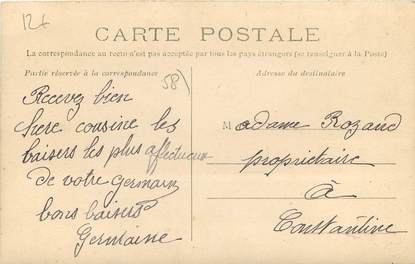 12f
CARTE POSTALE
La correspondance au recto n'est pas acceptée par tous les pays étrangers (se renseigner à la Poste)
Partie réservée à la correspondance
Adresse du destinataire
58
Recevez bien
chere cousine les
baisers les plus affectueux
de votre germain
bons baisers
Germaine
Madame Rozand
propriétaire
à
Constantine